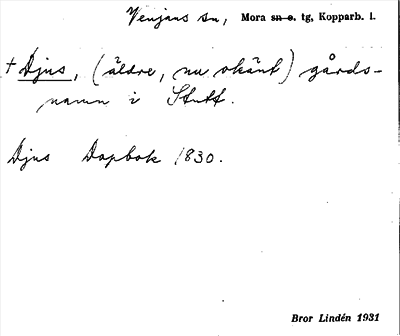 Venjans sn, Mora sn o. tg, Kopparb. l.
† Djus, (äldre, nu okänt) gårds-
namn i Stutt.
Djus Dopbok 1830.
Bror Lindén 1931